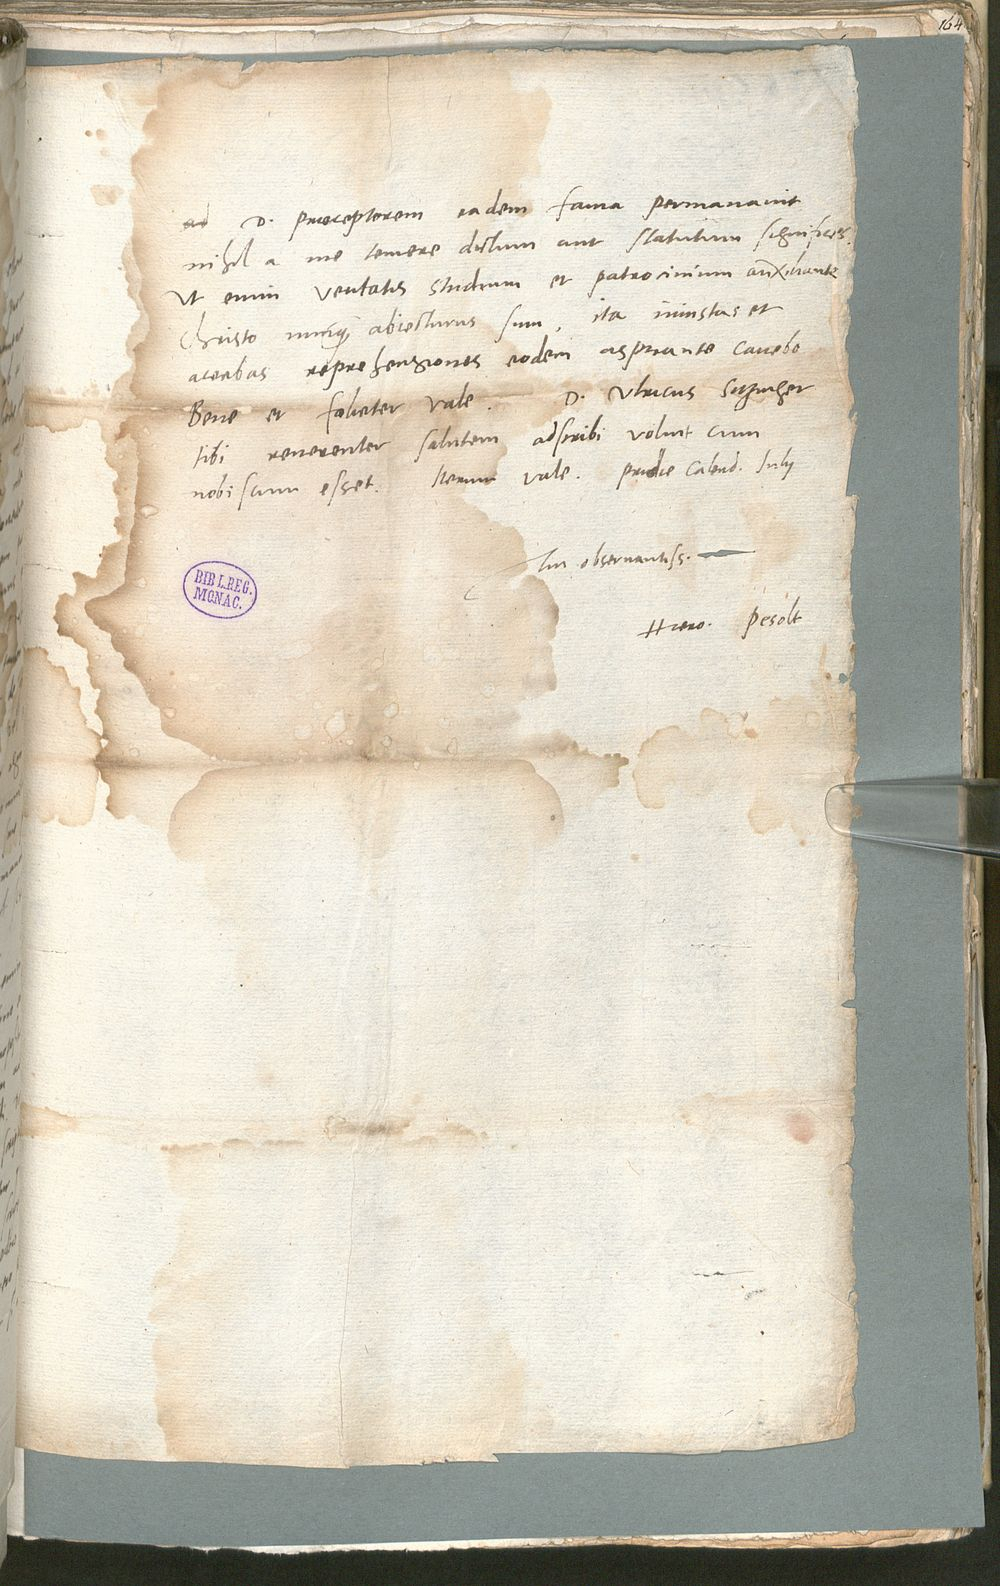 164
ad D. præceptorem eadem fama permanavit
nihil a me temere dictum aut statutum significes.
Ut enim veritatis studium et patrocinium auxiliante
Christo nunq abiecturus sum, ita iniustas et
acerbas reprehensiones eodem aspirante cavebo
Bene et fœliciter vale. D. Ulricus Sitzinger
tibi reverenter salutem adscribi voluit cum
nobiscum esset. Iterum vale. pridie Calend. Julij
Tui observantiss.
Hiero. Pesolt
BIBL.REG.
MONAC.